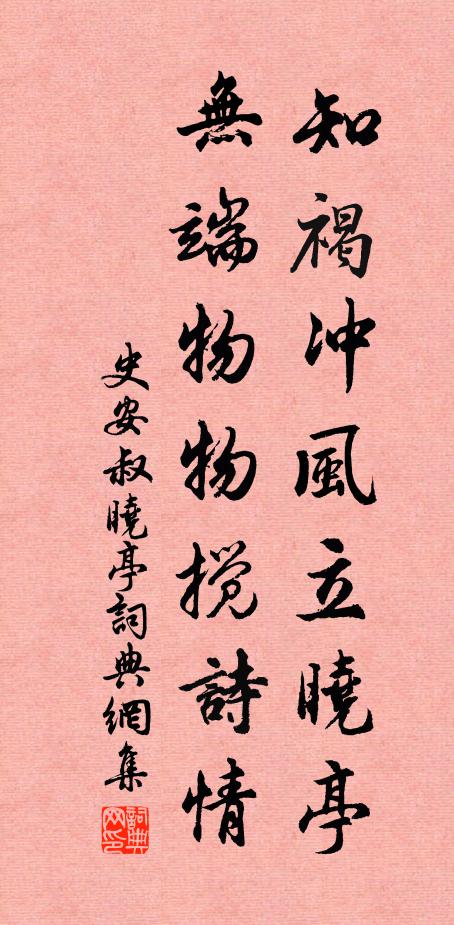 知褐冲風立曉亭
無端物物揽詩情
史安叔曉亭詞典網集
詞典网印